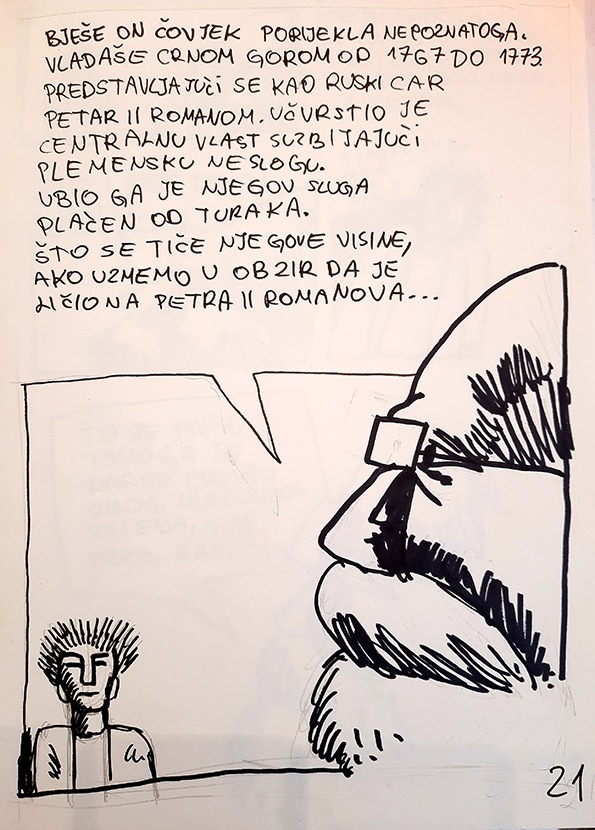 BJEŠE ON ČOVJEK PORIJEKLA NEPOZNATOGA.
VLADAŠE CRNOM GOROM OD 1767 DO 1773
PREDSTAVLJAJUĆI SE KAO RUSKI CAR
PETAR II ROMANOM. UČVRSTIO JE
CENTRALNU VLAST SUZBIJAJUĆI
PLEMENSKU NESLOGU.
UBIO GA JE NJEGOV SLUGA
PLAĆEN OD TURAKA.
ŠTO SE TIČE NJEGOVE VISINE,
AKO UZMEMO U OBZIR DA JE
LIČIO NA PETRA II ROMANOVA...
21